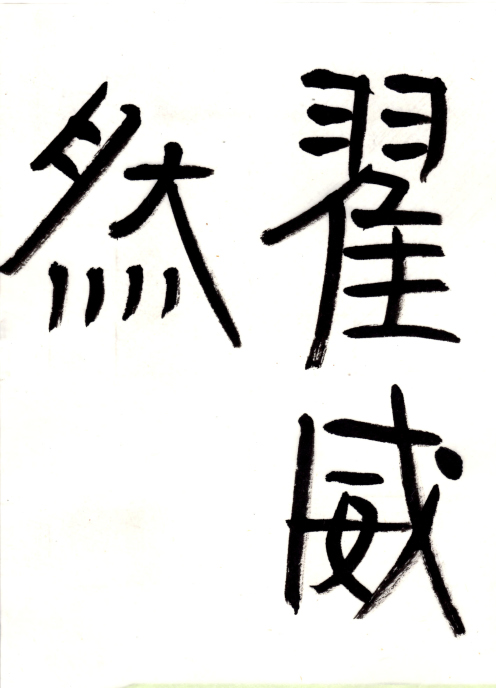 翟威
然